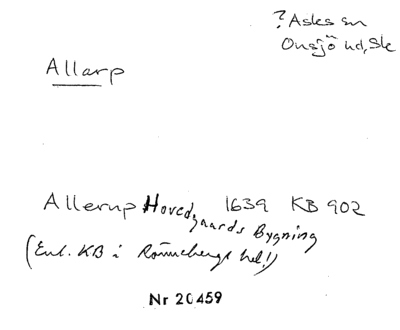 ? Asks sn
Onsjö hd, Sk
Allarp
Allerup Hovedgaards Bygning 1639 KB 902
(Enl. KB i Rönnebergs hd!)
Nr 20459